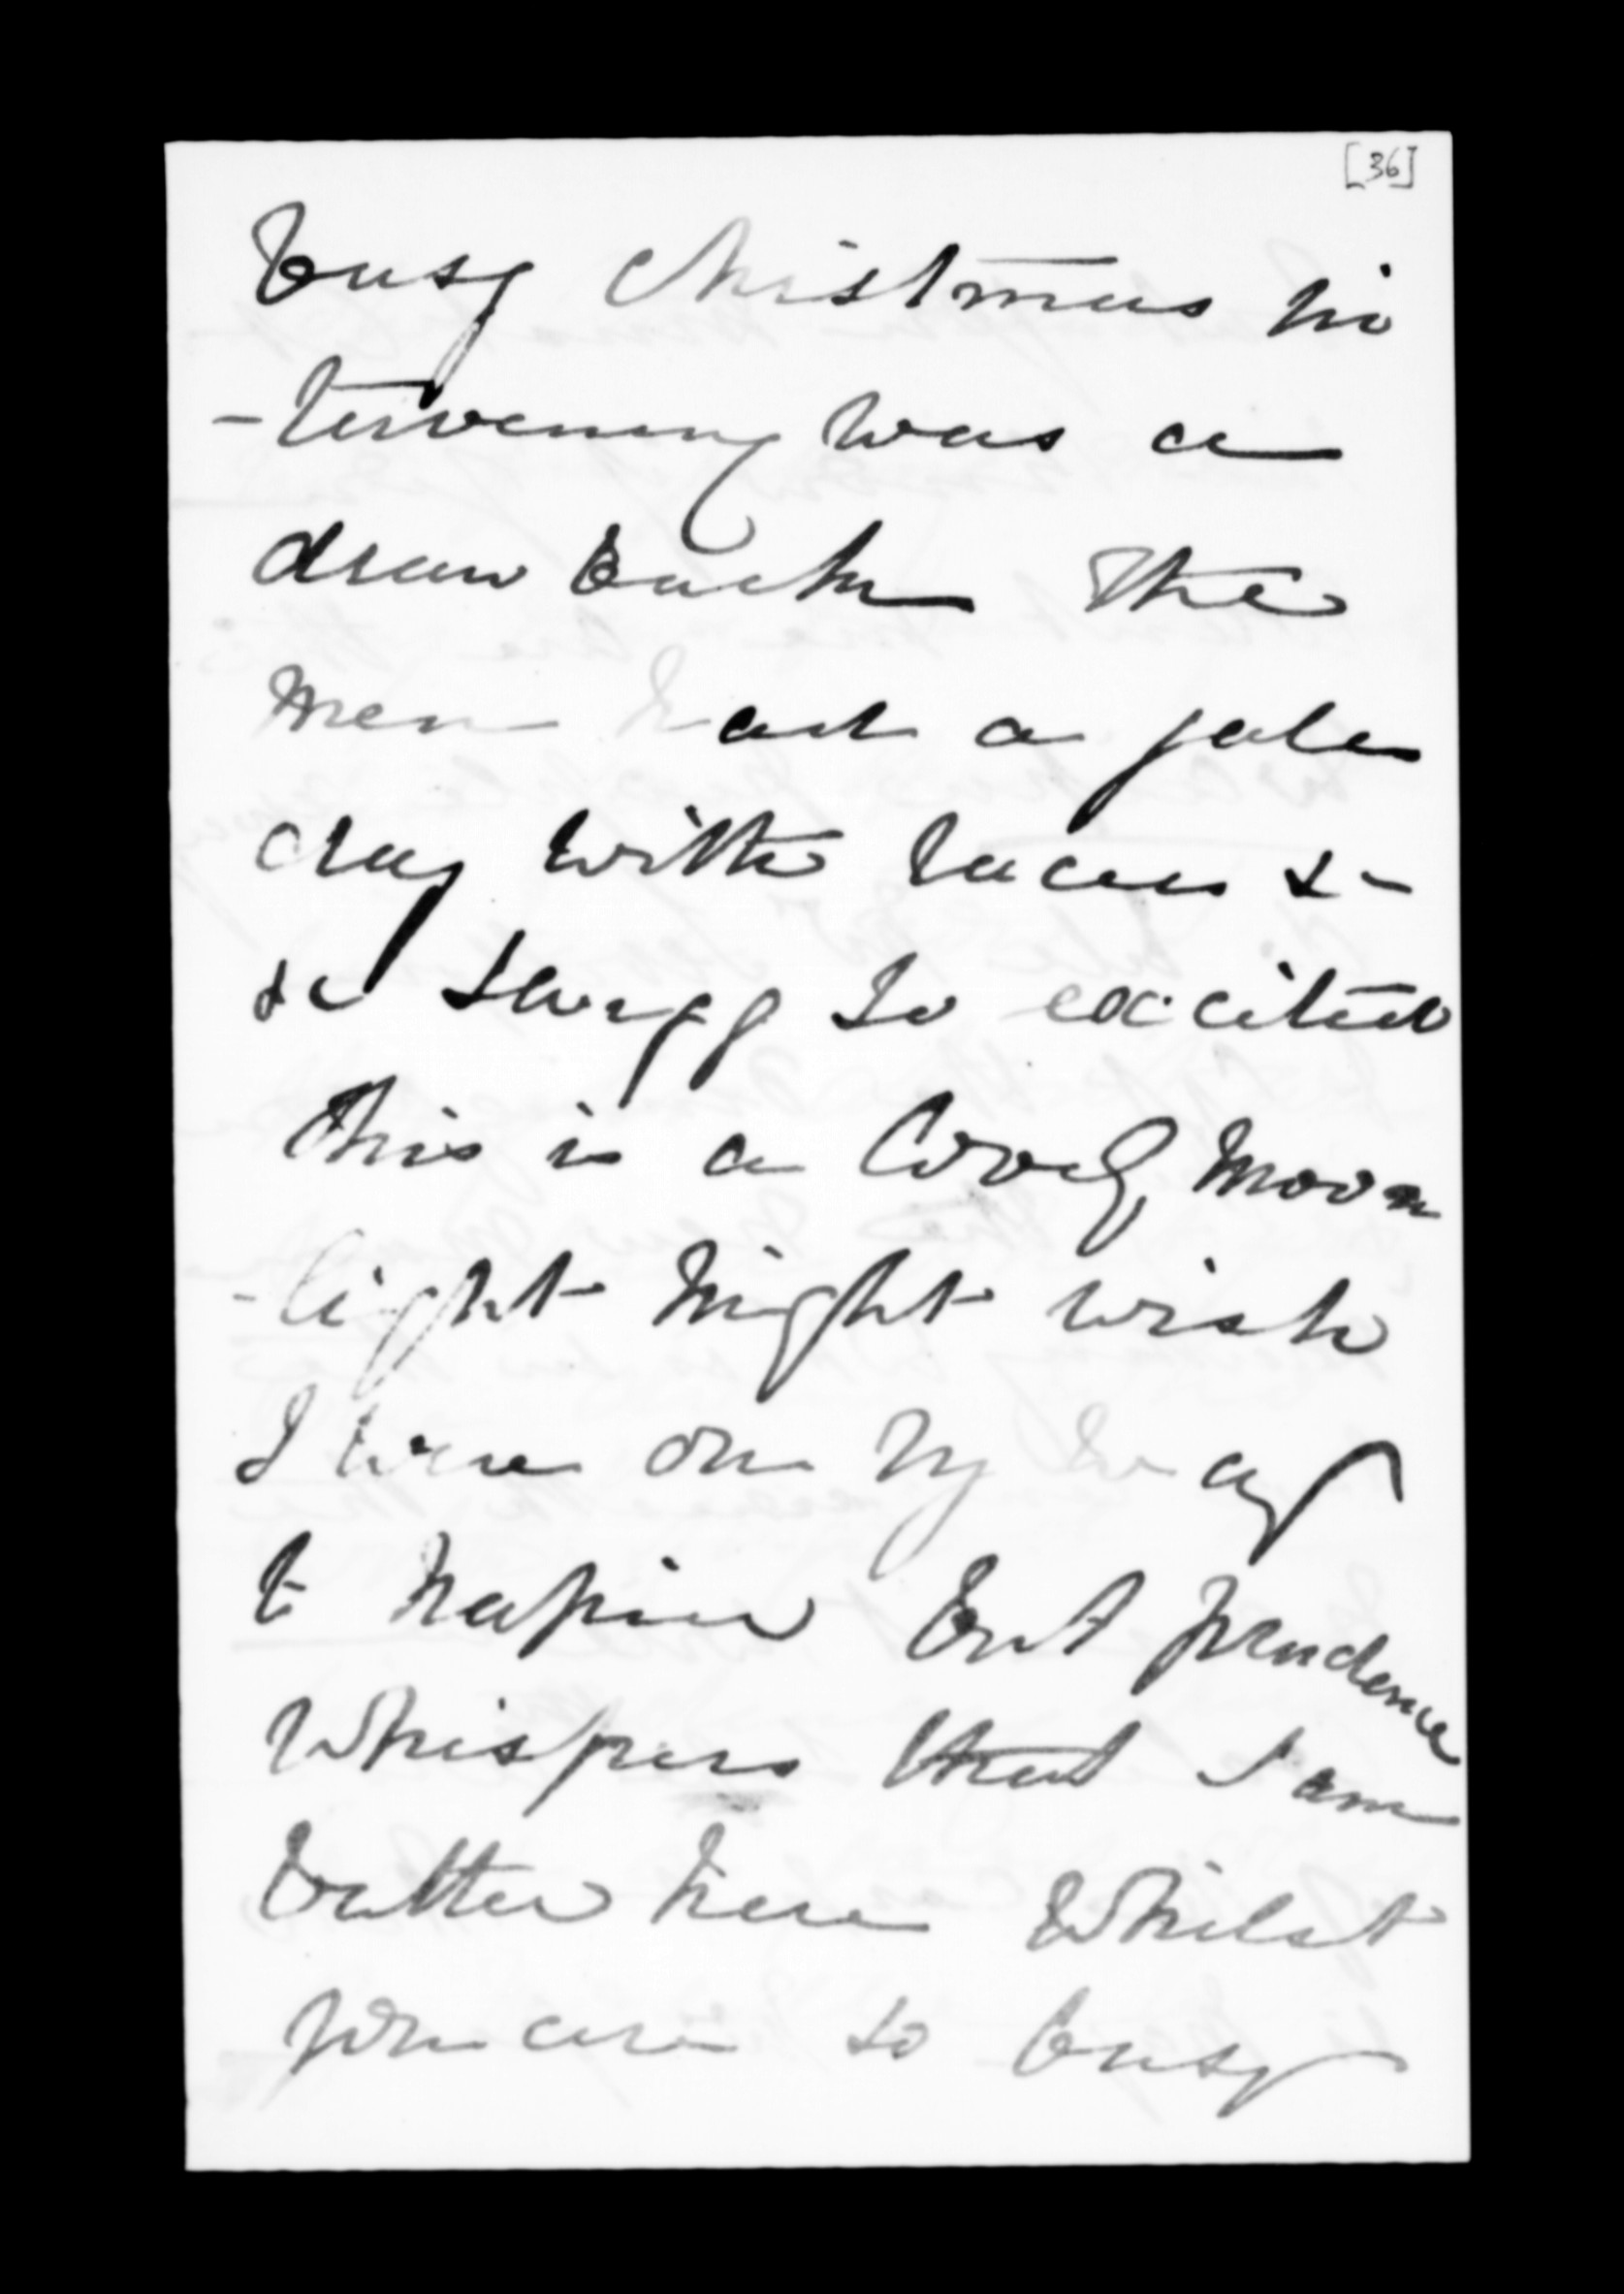 [36]
busy Christmas in
-tervening was a
draw back The
men had a gala
day with races &-
&c so excited
this is a lovely moon
-light night wish
I were on my way
to Napier but prudence
whispers that I am
better here whilst
you are so busy